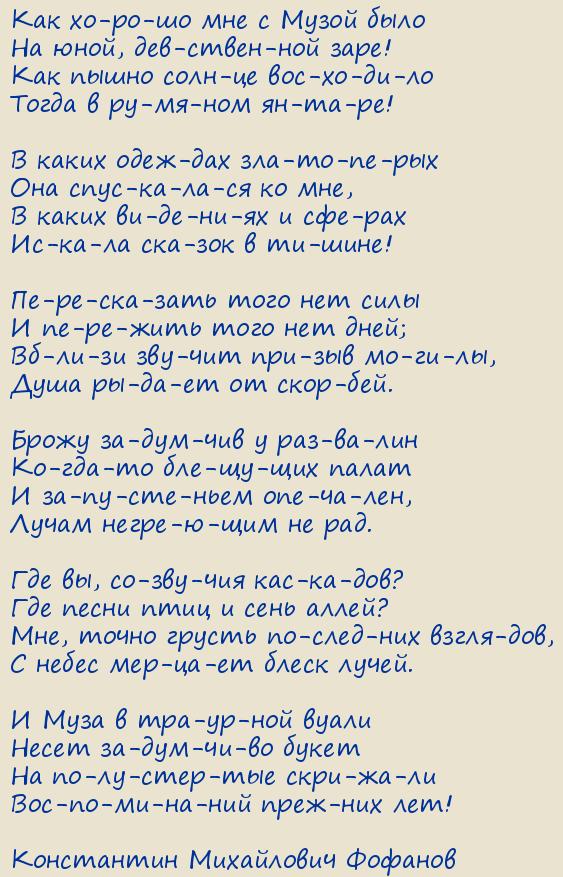 Как хо-ро-шо мне с Музой было
На юной, дев-ствен-ной заре!
Как пышно солн-це вос-хо-ди-ло
Тогда в ру-мя-ном ян-та-ре!

В каких одеж-дах зла-то-пе-рых
Она спус-ка-ла-ся ко мне,
В каких ви-де-ни-ях и сфе-рах
Ис-ка-ла ска-зок в ти-шине!

Пе-ре-ска-зать того нет силы
И пе-ре-жить того нет дней;
Вб-ли-зи зву-чит при-зыв мо-ги-лы,
Душа ры-да-ет от скор-бей.

Брожу за-дум-чив у раз-ва-лин
Ко-гда-то бле-щу-щих палат
И за-пу-сте-ньем опе-ча-лен,
Лучам негре-ю-щим не рад.

Где вы, со-зву-чия кас-ка-дов?
Где песни птиц и сень аллей?
Мне, точно грусть по-след-них взгля-дов,
С небес мер-ца-ет блеск лучей.

И Муза в тра-ур-ной вуали
Несет за-дум-чи-во букет
На по-лу-стер-тые скри-жа-ли
Вос-по-ми-на-ний преж-них лет!

Константин Михайлович Фофанов